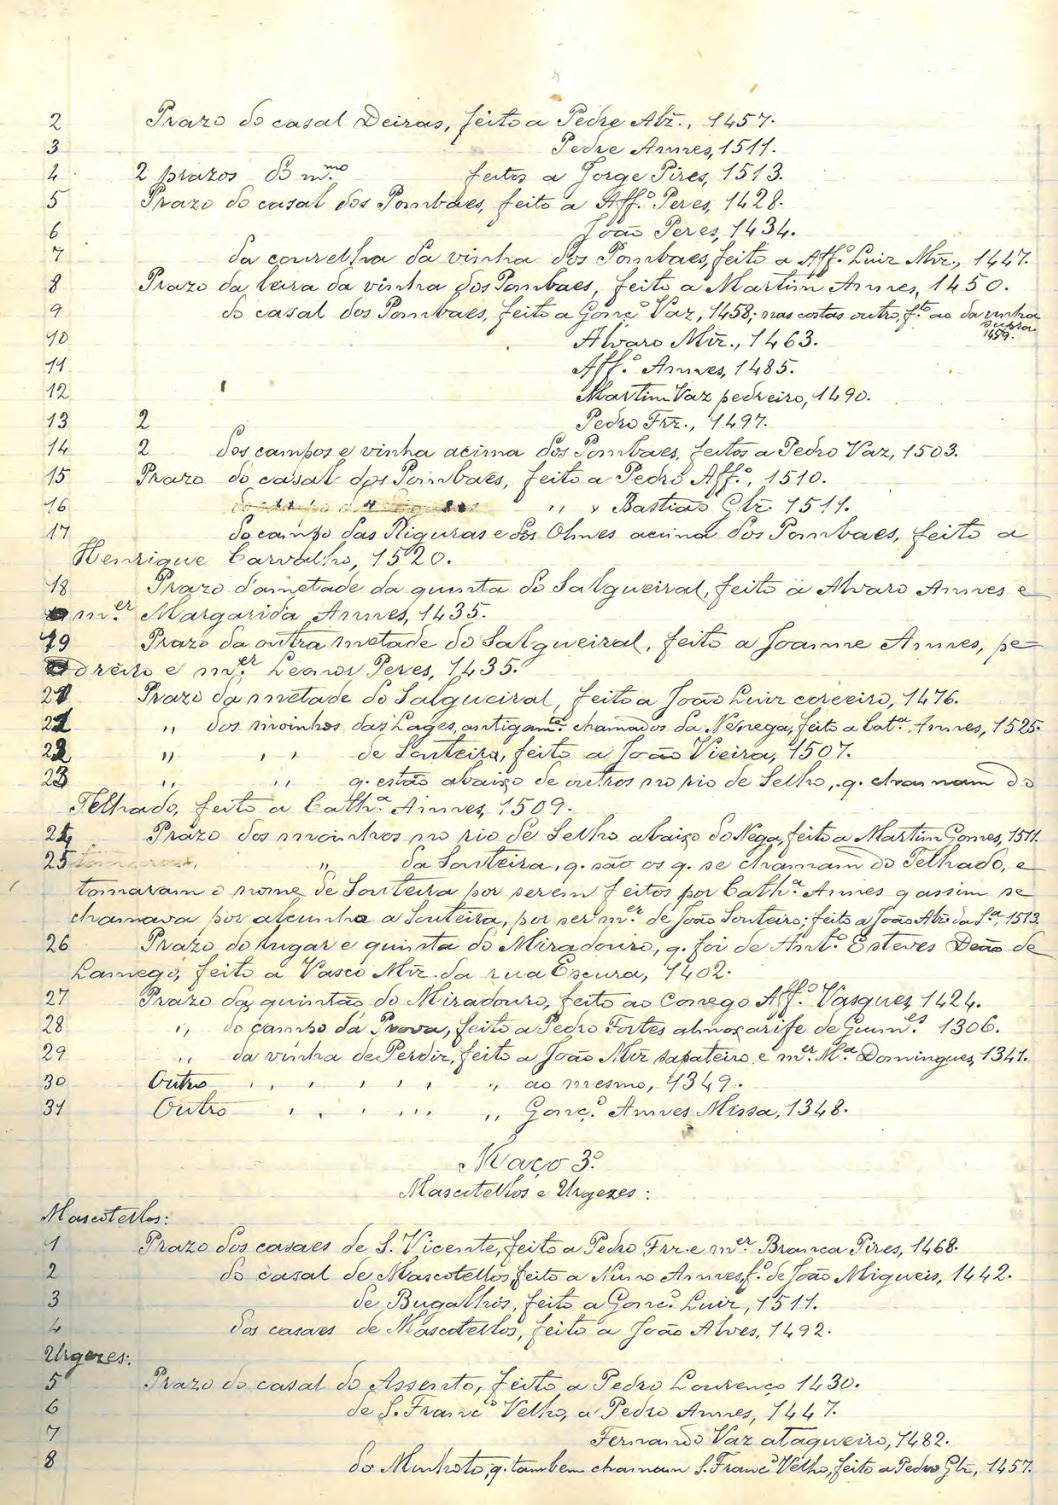 2 Prazo do casal Deiras, feito a Pedre Alz., 1457.
3 Pedre Annes, 1511.
4 2 prazos do m.mo feitos a Jorge Pires, 1513.
5 Prazo do casal dos Pombaes, feito a Aff.º Peres, 1428.
6 João Peres, 1434.
7 da courelha da vinha dos Pombaes, feito a Aff.º Luiz Miz., 1447.
8 Prazo da leira da vinha dos Pombaes, feito a Martim Annes, 1450.
9 do casal dos Pombaes, feito a Gonç.º Vaz, 1458; nas costas outro, f.to ao da vinha
1459.
10 Alvaro Miz., 1463.
11 Aff.º Annes, 1485.
12 Martim Vaz pedreiro, 1490.
13 2 Pedro Frz., 1497.
14 2 dos campos e vinha acima dos Pombaes, feitos a Pedro Vaz, 1503.
15 Prazo do casal dos Pombaes, feito a Pedro Aff.º, 1510.
16 „ „ Bastião Glz. 1511.
17 do campo das Riguras e dos Olmes acima dos Pombaes, feito a
Henrique Carvalho, 1520.
18 Prazo d'ametade da quinta do Salgueiral, feito a Alvaro Annes e
m.er Margarida Annes, 1435.
19 Prazo da outra metade do Salgueiral, feito a Joanne Annes, pe-
dreiro e m.er Leonor Peres, 1435.
21 Prazo da metade do Salgueiral, feito a João Luiz coreeiro, 1476.
21 „ dos moinhos das Lages, antigam.te chamados da Nesrega, feito a Cat.a Annes, 1525.
22 „ „ de Souteiro, feito a João Vieira, 1507.
23 „ „ q. estão abaixo de outros no rio de Selho, q. chamam do
Telhado, feito a Cath.a Annes, 1509.
24 Prazo dos moinhos no rio de Selho abaixo do Nega, feito a Martim Gomes, 1511.
25 „ da Souteira, q. são os q. se chamam do Telhado, e
tomaram o nome de Souteira por serem feitos por Cath.a Annes q assim se
chamava por alcunha a Souteira, por ser m.er de João Souteiro; feito a João Alz da S.a, 1513.
26 Prazo do lugar e quinta do Miradouro, q. foi de Ant.º Esteves Deão de
Lamego, feito a Vasco Miz. da rua Escura, 1402.
27 Prazo da quintão do Miradouro, feito ao Conego Aff.º Vasques, 1424.
28 „ do campo da Prova, feito a Pedro Fortes almoxarife de Guim.es 1306.
29 „ da vinha de Perdiz, feito a João Miz sapateiro e m.er M.a Domingues, 1341.
30 Outro „ ao mesmo, 1349.
31 Outro „ Gonç.º Annes Missa, 1348.
Maço 3.º
Mascotellos e Urgezes:
Mascotellos:
1 Prazo dos casaes de S. Vicente, feito a Pedro Frz. e m.er Branca Pires, 1468.
2 do casal de Mascotellos, feito a Nuno Annes, f.º de João Migueis, 1442.
3 de Bugalhós, feito a Gonç.º Luiz, 1511.
4 dos casaes de Mascotellos, feito a João Alves, 1492.
Urgezes:
5 Prazo do casal do Assento, feito a Pedro Lourenço 1430.
6 de S. Franc.º Velho, a Pedro Annes, 1447.
7 Fernando Vaz ataqueiro, 1482.
8 do Minhoto, q. tambem chamam S. Franc.º Velho, feito a Pedro Glz, 1457.